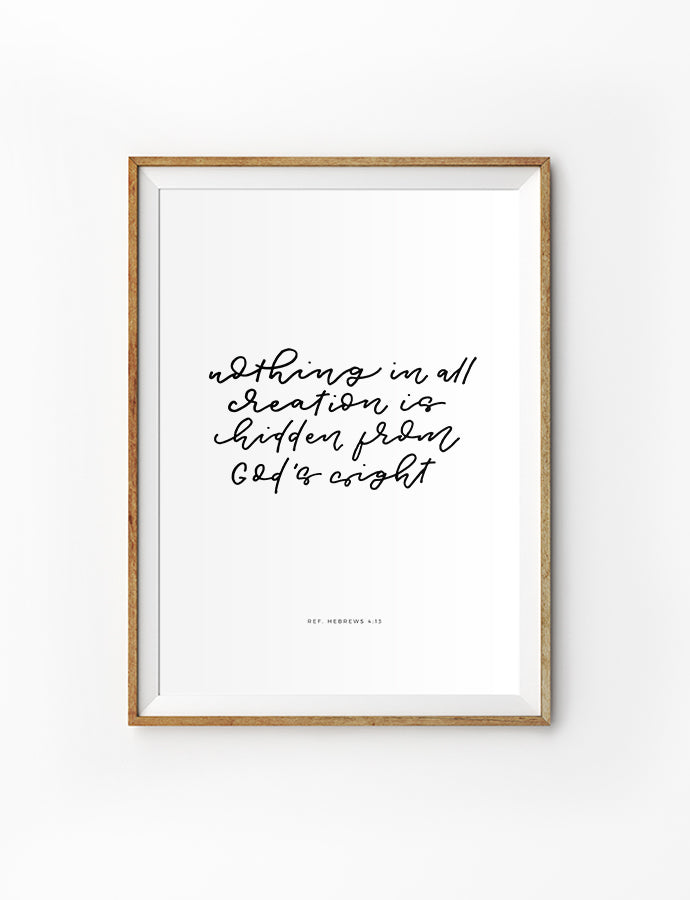 nothing in all
creation is
hidden from
God's sight
REF. HEBREWS 4:13